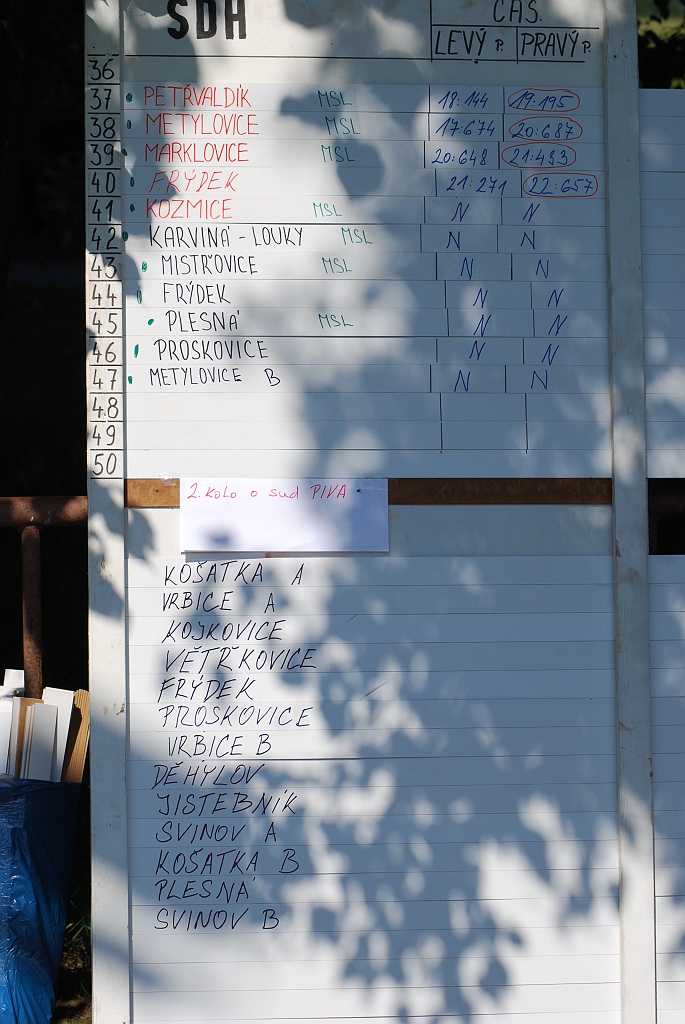 SDH ČAS.
LEVÝ P. PRAVÝ P.
36
37 PETŘVALDÍK MSL 18:144 19:195
38 METYLOVICE MSL 17:674 20:687
39 MARKLOVICE MSL 20:648 21:493
40 FRÝDEK 21:271 22:657
41 KOZMICE MSL N N
42 KARVINÁ - LOUKY MSL N N
43 MISTŘOVICE MSL N N
44 FRÝDEK N N
45 PLESNÁ MSL N N
46 PROSKOVICE N N
47 METYLOVICE B N N
48
49
50
2. kolo o sud PIVA
KOŠATKA A
VRBICE A
KOJKOVICE
VĚTŘKOVICE
FRÝDEK
PROSKOVICE
VRBICE B
DĚHYLOV
JISTEBNÍK
SVINOV A
KOŠATKA B
PLESNÁ
SVINOV B